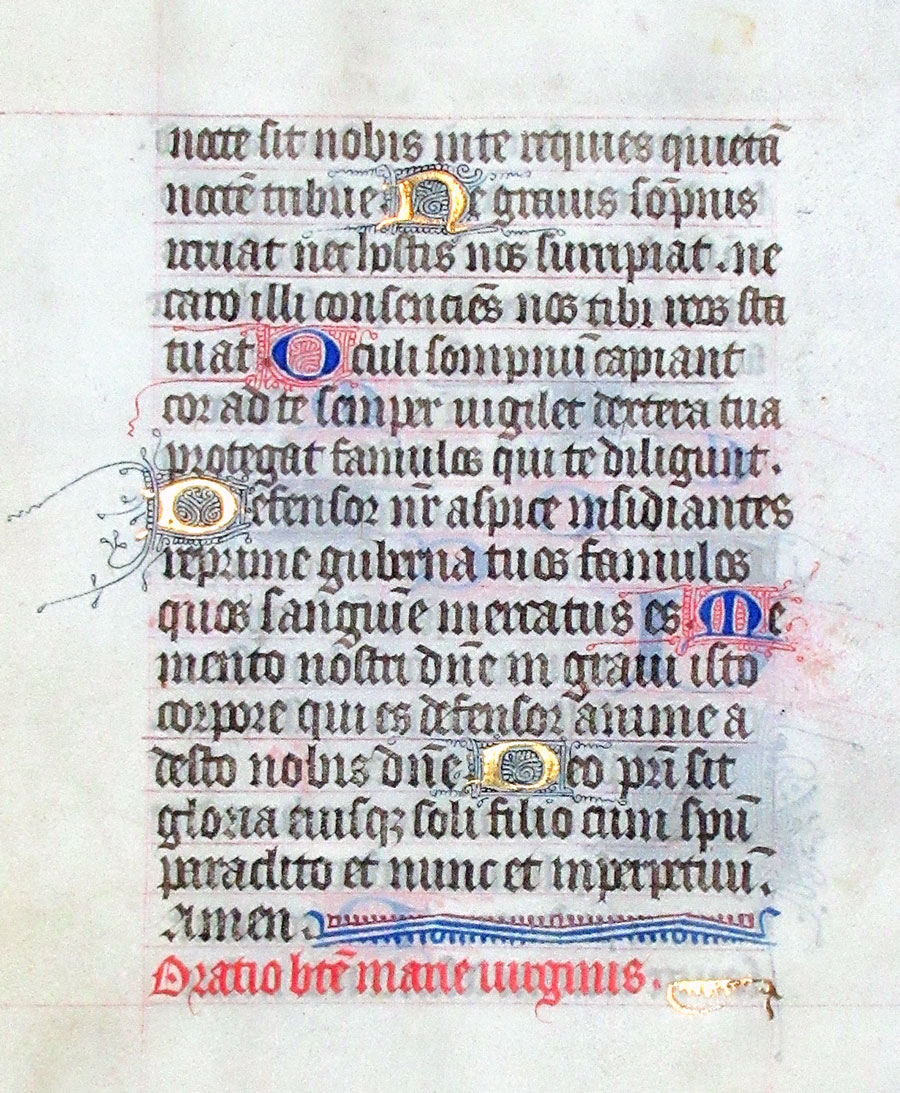 nocte sit nobis in te requies quietā
noctē tribue. Ne grauis sōpnus
irruat nec hostis nos surripiat. ne
caro illi consenciēs nos tibi reos sta
tuat Oculi sompnū capiant
cor ad te semper uigilet dextera tua
protegat famulos qui te diligunt.
Defensor nr̄ aspice insidiantes
reprime guberna tuos famulos
quos sanguīe mercatus es. Me
mento nostri dn̄e in graui isto
corpore qui es defensor anime a
desto nobis dn̄e. Deo pr̄i sit
gloria eiusqꝫ soli filio cum sp̄u
paraclito et nunc et inperpetuū.
Amen.
Oratio btē marie uirginis.